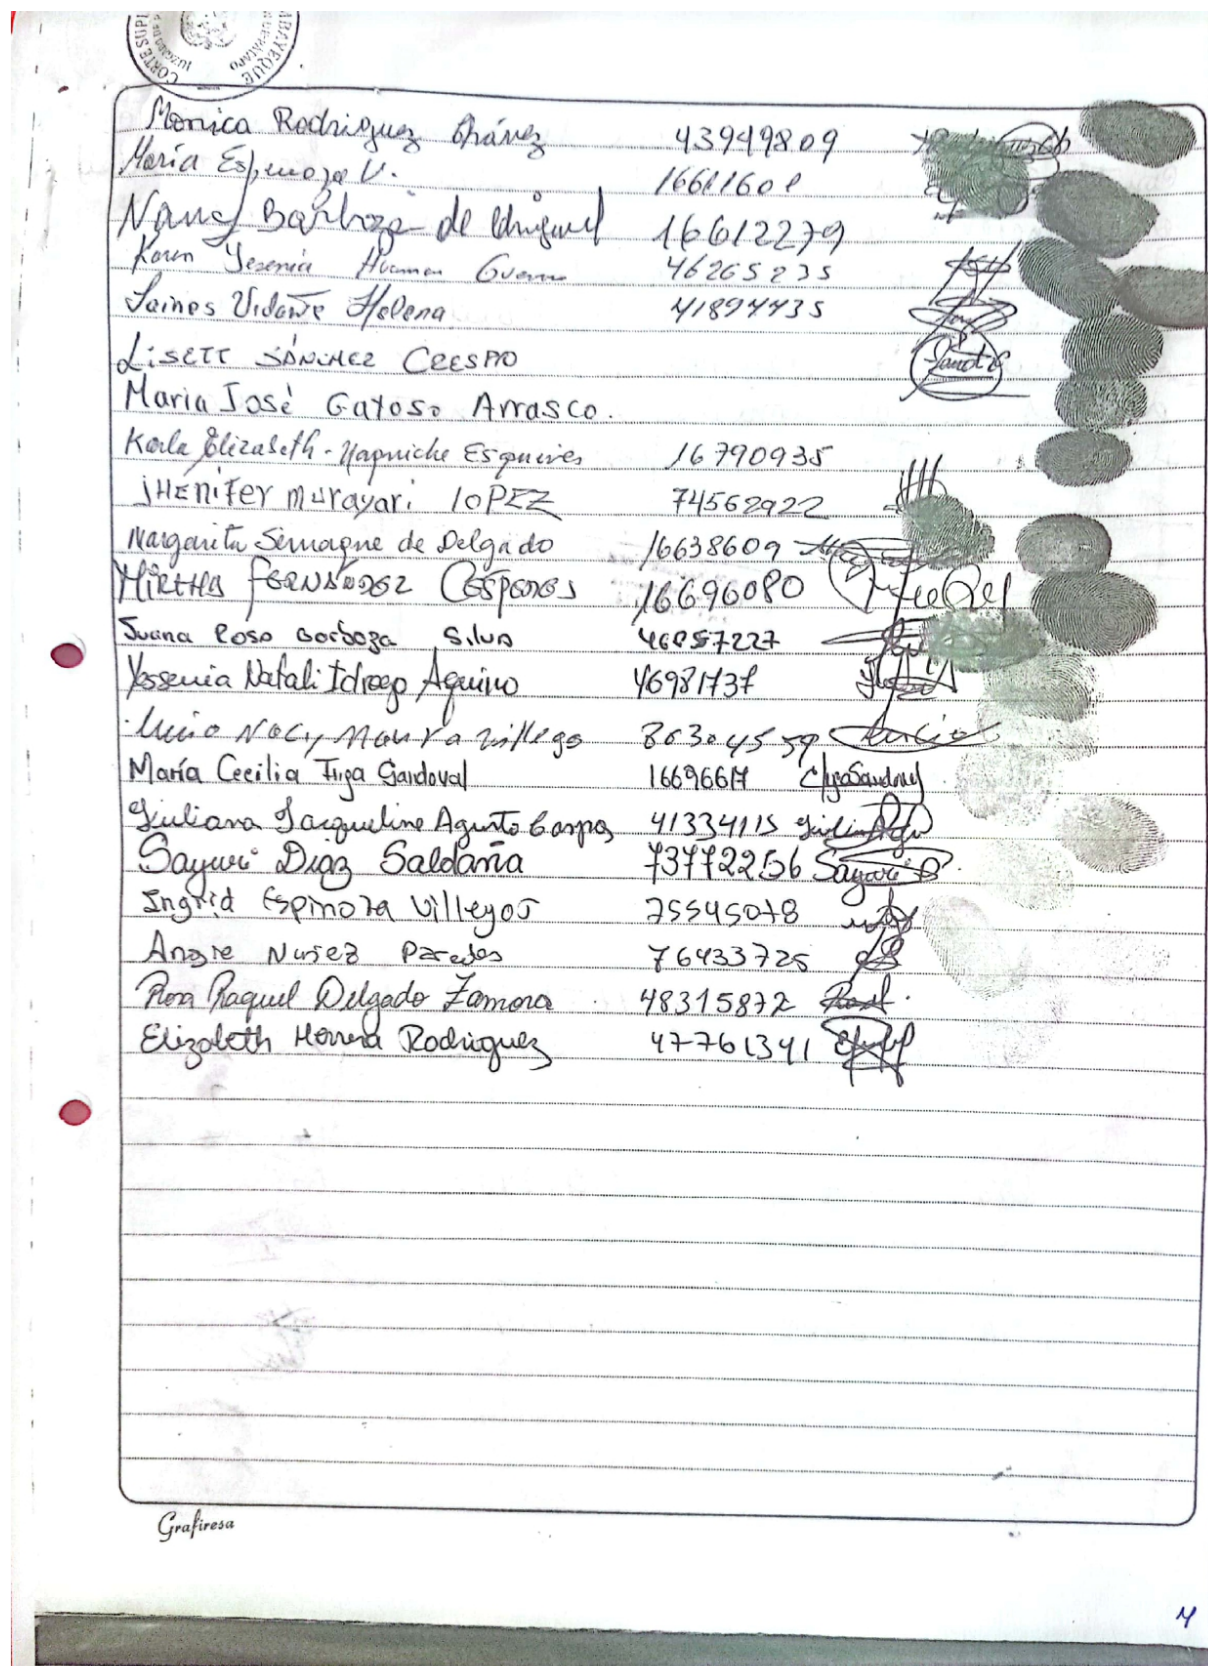 CORTE SUPE
BAYEQUE
Monica Rodriguez Chávez 43949809
María Espinoza V. 16611601
Nancy Barboza de Chiguel 16612279
Karen Yesenia Huaman Guerre 46265235
Saines Vidarte Helena 41897735
LISETT SÁNCHEZ CRESPO
Maria José Gayoso Arrasco.
Karla Elizabeth Yapuiche Esquives 16790935
JHENIFER Murayari LOPEZ 74562922
Margarita Semaque de Delgado 16638609
MIRTHA FERNÁNDEZ CÉSPEDES 16696080
Juana Rosa Barboza Silva 46057227
Yessenia Natali Idrogo Aquino 46981737
80304559
María Cecilia Tirga Sandoval 16696617
Giuliana Jacqueline Agurto Campos 41334115
Sayuri Diaz Saldaña 73772256 Sayuri D.
Ingrid Espinoza Villegas 75545078
Angie Nuñez Paredes 76433725
Rosa Raquel Delgado Zamora 48315872
Elizabeth Herrera Rodriguez 47761341
Grafiresa